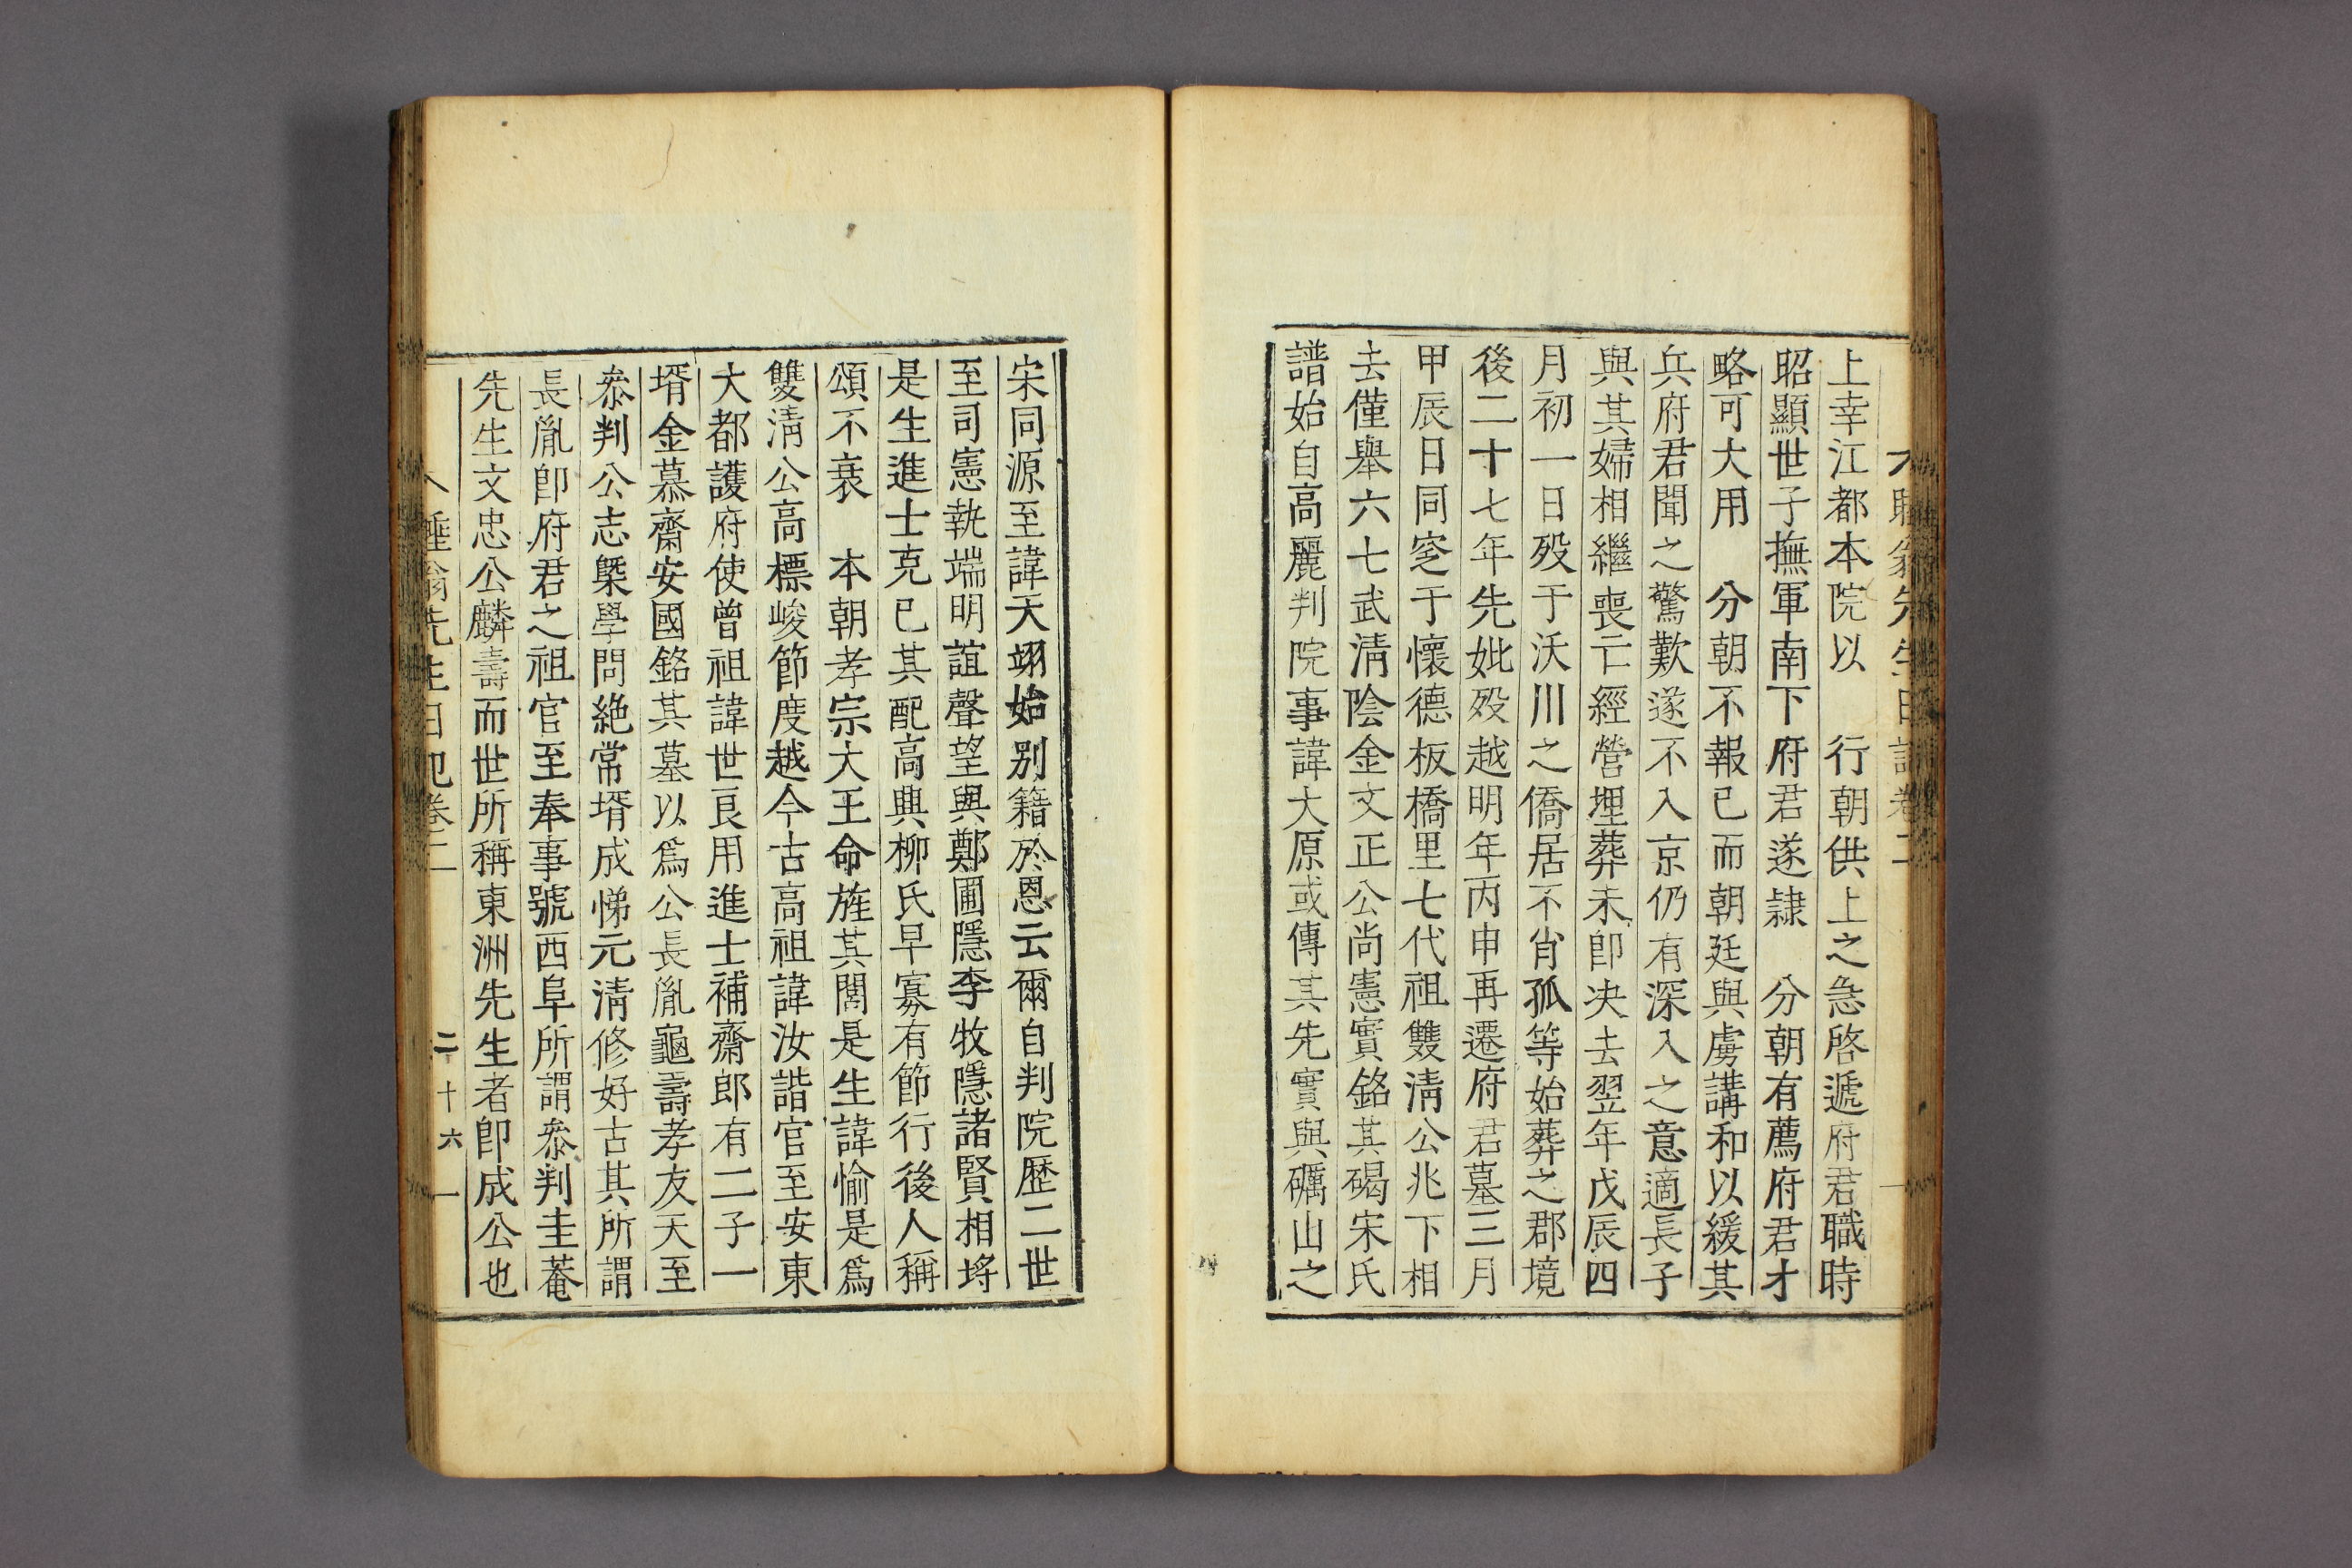 上幸江都本院以　行朝供上之急啓遞府君職時
昭顯世子撫軍南下府君遂隷　分朝有薦府君才
略可大用　分朝不報已而朝廷與虜講和以緩其
兵府君聞之驚歎遂不入京仍有深入之意適長子
與其婦相繼喪亡經營埋葬未卽决去翌年戊辰四
月初一日歿于沃川之僑居不肖孤等始葬之郡境
後二十七年先妣歿越明年丙申再遷府君墓三月
甲辰日同窆于懷德板橋里七代祖雙淸公兆下相
去僅舉六七武淸陰金文正公尚憲實銘其碣宋氏
譜始自高麗判院事諱大原或傳其先實與礪山之
宋同源至諱天翊始别籍於恩云爾自判院歷二世
至司憲執端明誼聲望與鄭圃隱李牧隱諸賢相埒
是生進士克已其配高興柳氏早寡有節行後人稱
頌不衰　本朝孝宗大王命旌其閭是生諱愉是爲
雙淸公高標峻節度越今古高祖諱汝諧官至安東
大都護府使曾祖諱世良用進士補齋郎有二子一
壻金慕齋安國銘其墓以爲公長胤龜壽孝友天至
叅判公志槩學問絶常壻成悌元淸修好古其所謂
長胤卽府君之祖官至奉事號西阜所謂叅判圭菴
先生文忠公麟壽而世所稱東洲先生者卽成公也
睡翁先生日記卷二　二十六